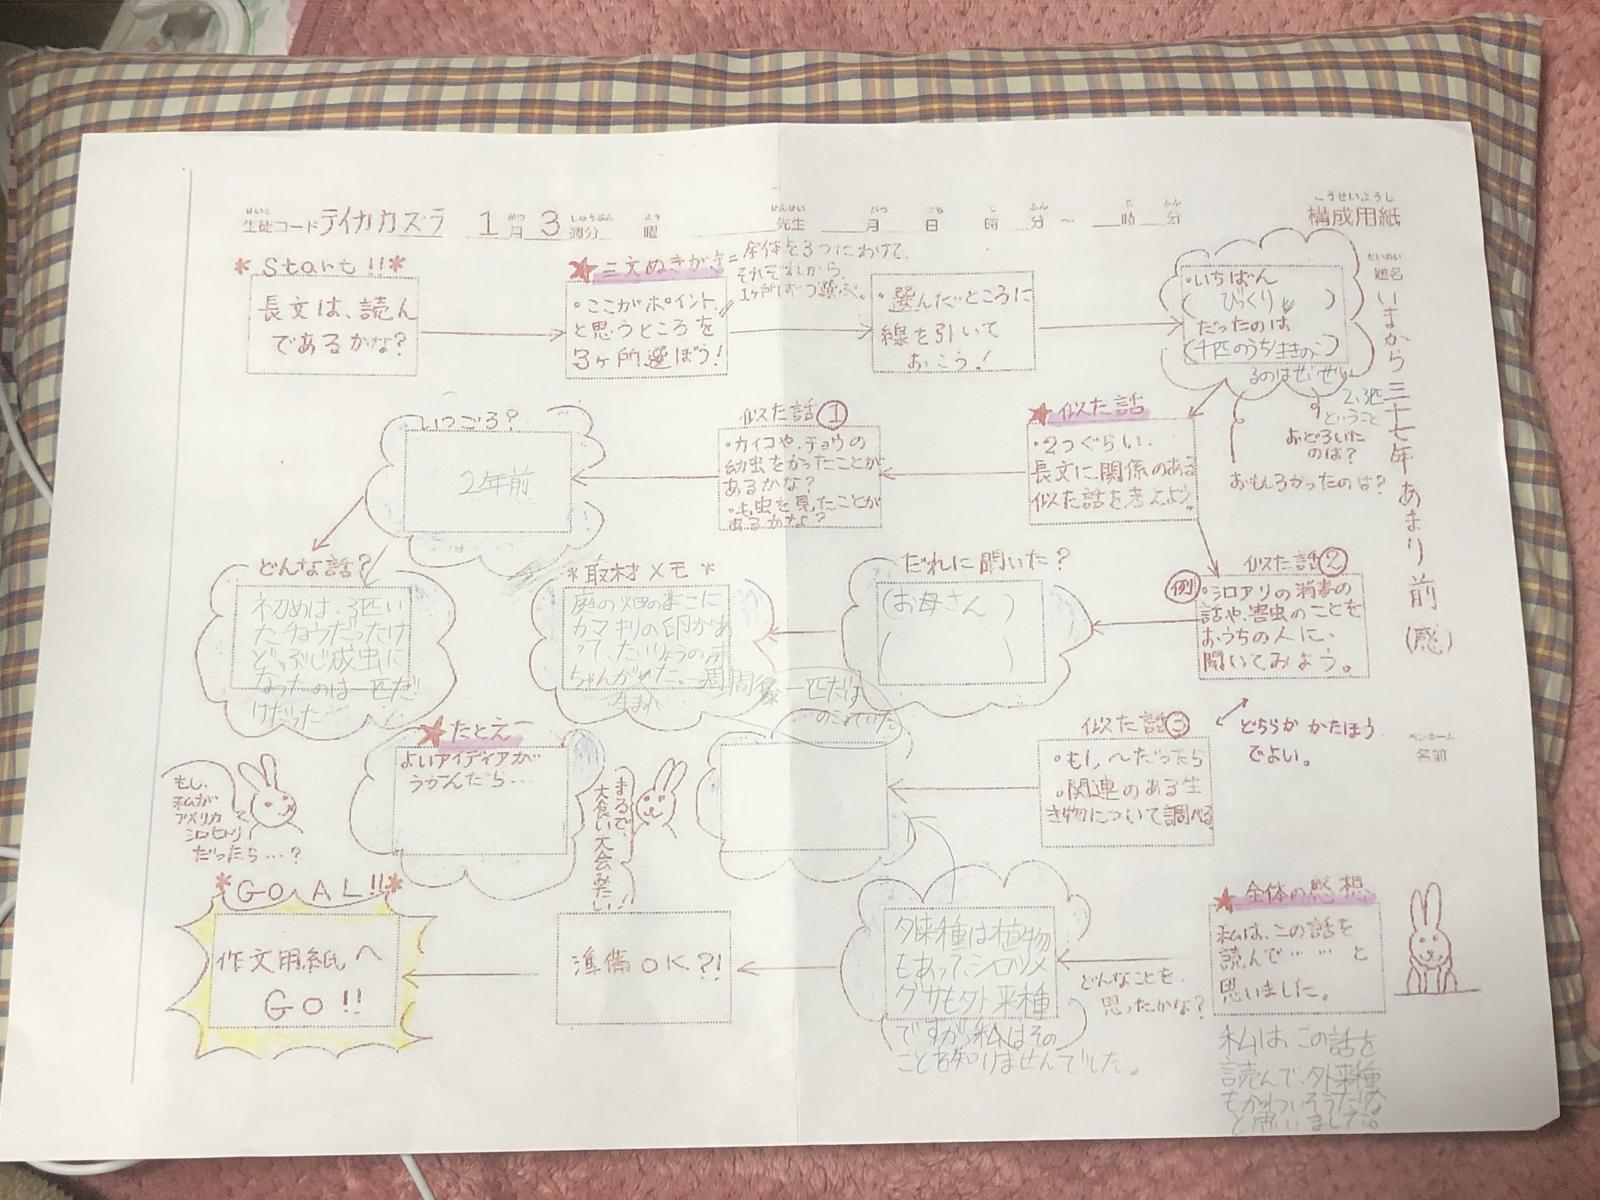 こうせいようし
構成用紙
せいと
生徒コード テイカカズラ 1月 3週分 曜 先生 月 日 時 分 ～ 時 分
だいめい
題名
いまから三十七年あまり前(感)
ペンネーム
名前
*Start!!*
長文は、読んであるかな?
★三文ぬきがき=全体を3つにわけて、
それぞれから、
1ヶ所ずつ選ぶ。
・ここがポイント
と思うところを
3ヶ所選ぼう!
・選んだところに
線を引いて
おこう!
・いちばん
(びっくり)
だったのは
るのはせいぜい
2、3匹
ということ
おどろいた
のは?
おもしろかったのは?
★似た話
・2つぐらい、
長文に関係のある
似た話を考えよう。
似た話①
・カイコや、チョウの
幼虫をかったことが
あるかな?
・毛虫を見たことが
あるかな?
いつごろ?
2年前
どんな話?
初めは、3匹い
たチョウだったけ
どぶじ成虫に
なったのは一匹だ
けだった
似た話②
例
・シロアリの消毒の
話や、害虫のことを
おうちの人に、
聞いてみよう。
だれに聞いた?
(お母さん )
( )
*取材メモ*
庭の畑のよこに
カマキリの卵があ
って、たいりょうの赤
ちゃんが
生まれ
た。一週間後
一匹だけ
のこっていた。
どちらか かたほう
でよい。
似た話③
・もし、～だったら
・関連のある生
き物について調べる
★たとえ
よいアイディアが
うかんだら…
まるで、
大食い大会みたい!!
もし、
私が
アメリカ
シロヒトリ
だったら…?
★全体の感想
私は、この話を
読んで……と
思いました。
私は、この話を
読んで、外来種
もかわいそうだな
と思いました。
どんなことを、
思ったかな?
外来種は植物
もあって、シロツメ
グサも外来種
ですが私はその
ことを知りませんでした。
準備OK?!
*GOAL!!*
作文用紙へ
GO!!